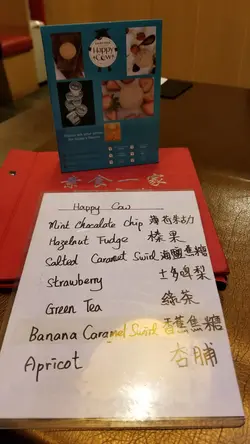 Happy
Cow
素食一家
Happy Cow
Mint Chocolate Chip 薄荷朱古力
Hazelnut Fudge 榛果
Salted Caramel Swirl 海鹽焦糖
Strawberry 士多啤梨
Green Tea 綠茶
Banana Caramel Swirl 香蕉焦糖
Apricot 杏脯